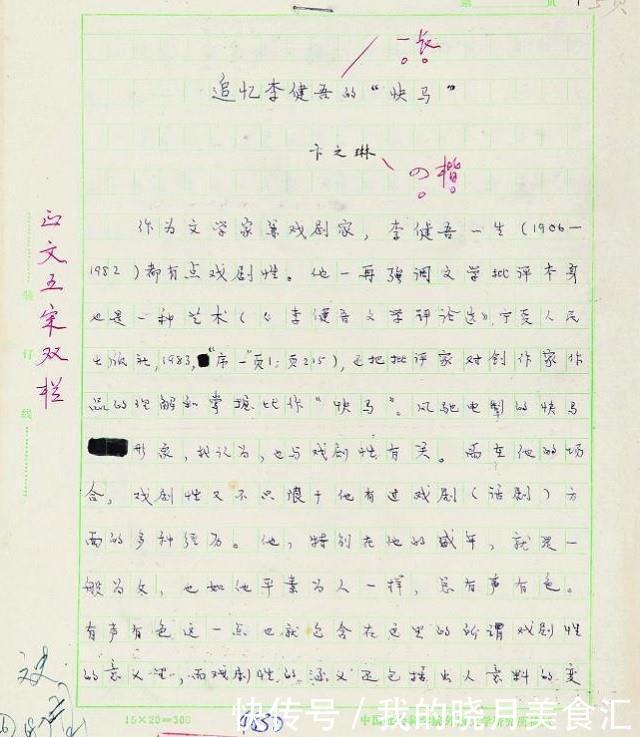 第 页
一长
追忆李健吾的“快马”
卞之琳
楷
作为文学家兼戏剧家，李健吾一生（1906—
1982）都有点戏剧性。他一再强调文学批评本身
也是一种艺术（《李健吾文学评论选》，宁夏人民
出版社，1983，“序一”页1；页215），还把批评家对创作家作
品的理解和掌握比作“快马”。风驰电掣的快马
形象，我认为，也与戏剧性有关。而在他的场
合，戏剧性又不只限于他有过戏剧（话剧）方
面的多种经历。他，特别在他的盛年，就是一
般为文，也如他平素为人一样，总有声有色。
有声有色这一点也就包含在这里的所谓戏剧性
的意义里，而戏剧性的涵义还包括出人意料的变
正文五宋双栏
装
订
线
15×20=300
快传号／我的晓月美食汇